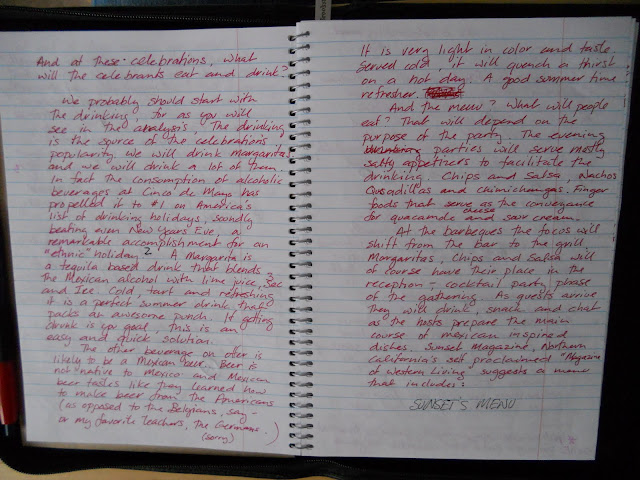 And at these celebrations, what
will the celebrants eat and drink?
We probably should start with
the drinking, for as you will
see in the analysis, the drinking
is the source of the celebrations
popularity. We will drink Margaritas
and we will drink a lot of them.
In fact the consumption of alcoholic
beverages at Cinco de Mayo has
propelled it to #1 on America's
list of drinking holidays, soundly
beating even New Years Eve, a
remarkable accomplishment for an
"ethnic" holiday. 2 A Margarita is
a tequila based drink that blends
the Mexican alcohol with lime juice, 3 sec
and Ice. Cold, tart and refreshing
it is a perfect summer drink that
packs an awesome punch. If getting
drunk is you goal, this is an
easy and quick solution.
The other beverage on offer is
likely to be a Mexican beer. Beer is
not "native to Mexico and Mexican
beer tastes like they learned how
to make beer from the Americans
(as opposed to the Belgians, say -
or my favorite teachers, the Germans.)
(sorry)
It is very light in color and taste
served cold, it will quench a thirst
on a hot day. A good summer time
refresher.
And the menu? What will people
eat? That will depend on the
purpose of the party. The evening
parties will serve mostly
salty appetizers to facilitate the
drinking. Chips and Salsa, Nachos
Quesadillas and chimichangas. Finger
foods that serve as the conveyance
for guacamole cheese and sour cream.
At the barbeques the focus will
shift from the bar to the grill.
Margaritas, Chips and Salsa will
of course have their place in the
reception - cocktail party phase
of the gathering. As guests arrive
they will drink, snack and chat
as the hosts prepare the main
course of mexican inspired
dishes. Sunset Magazine, Northern
California's self proclaimed "Magazine
of Western Living suggests a menu
that includes:
SUNSET'S MENU